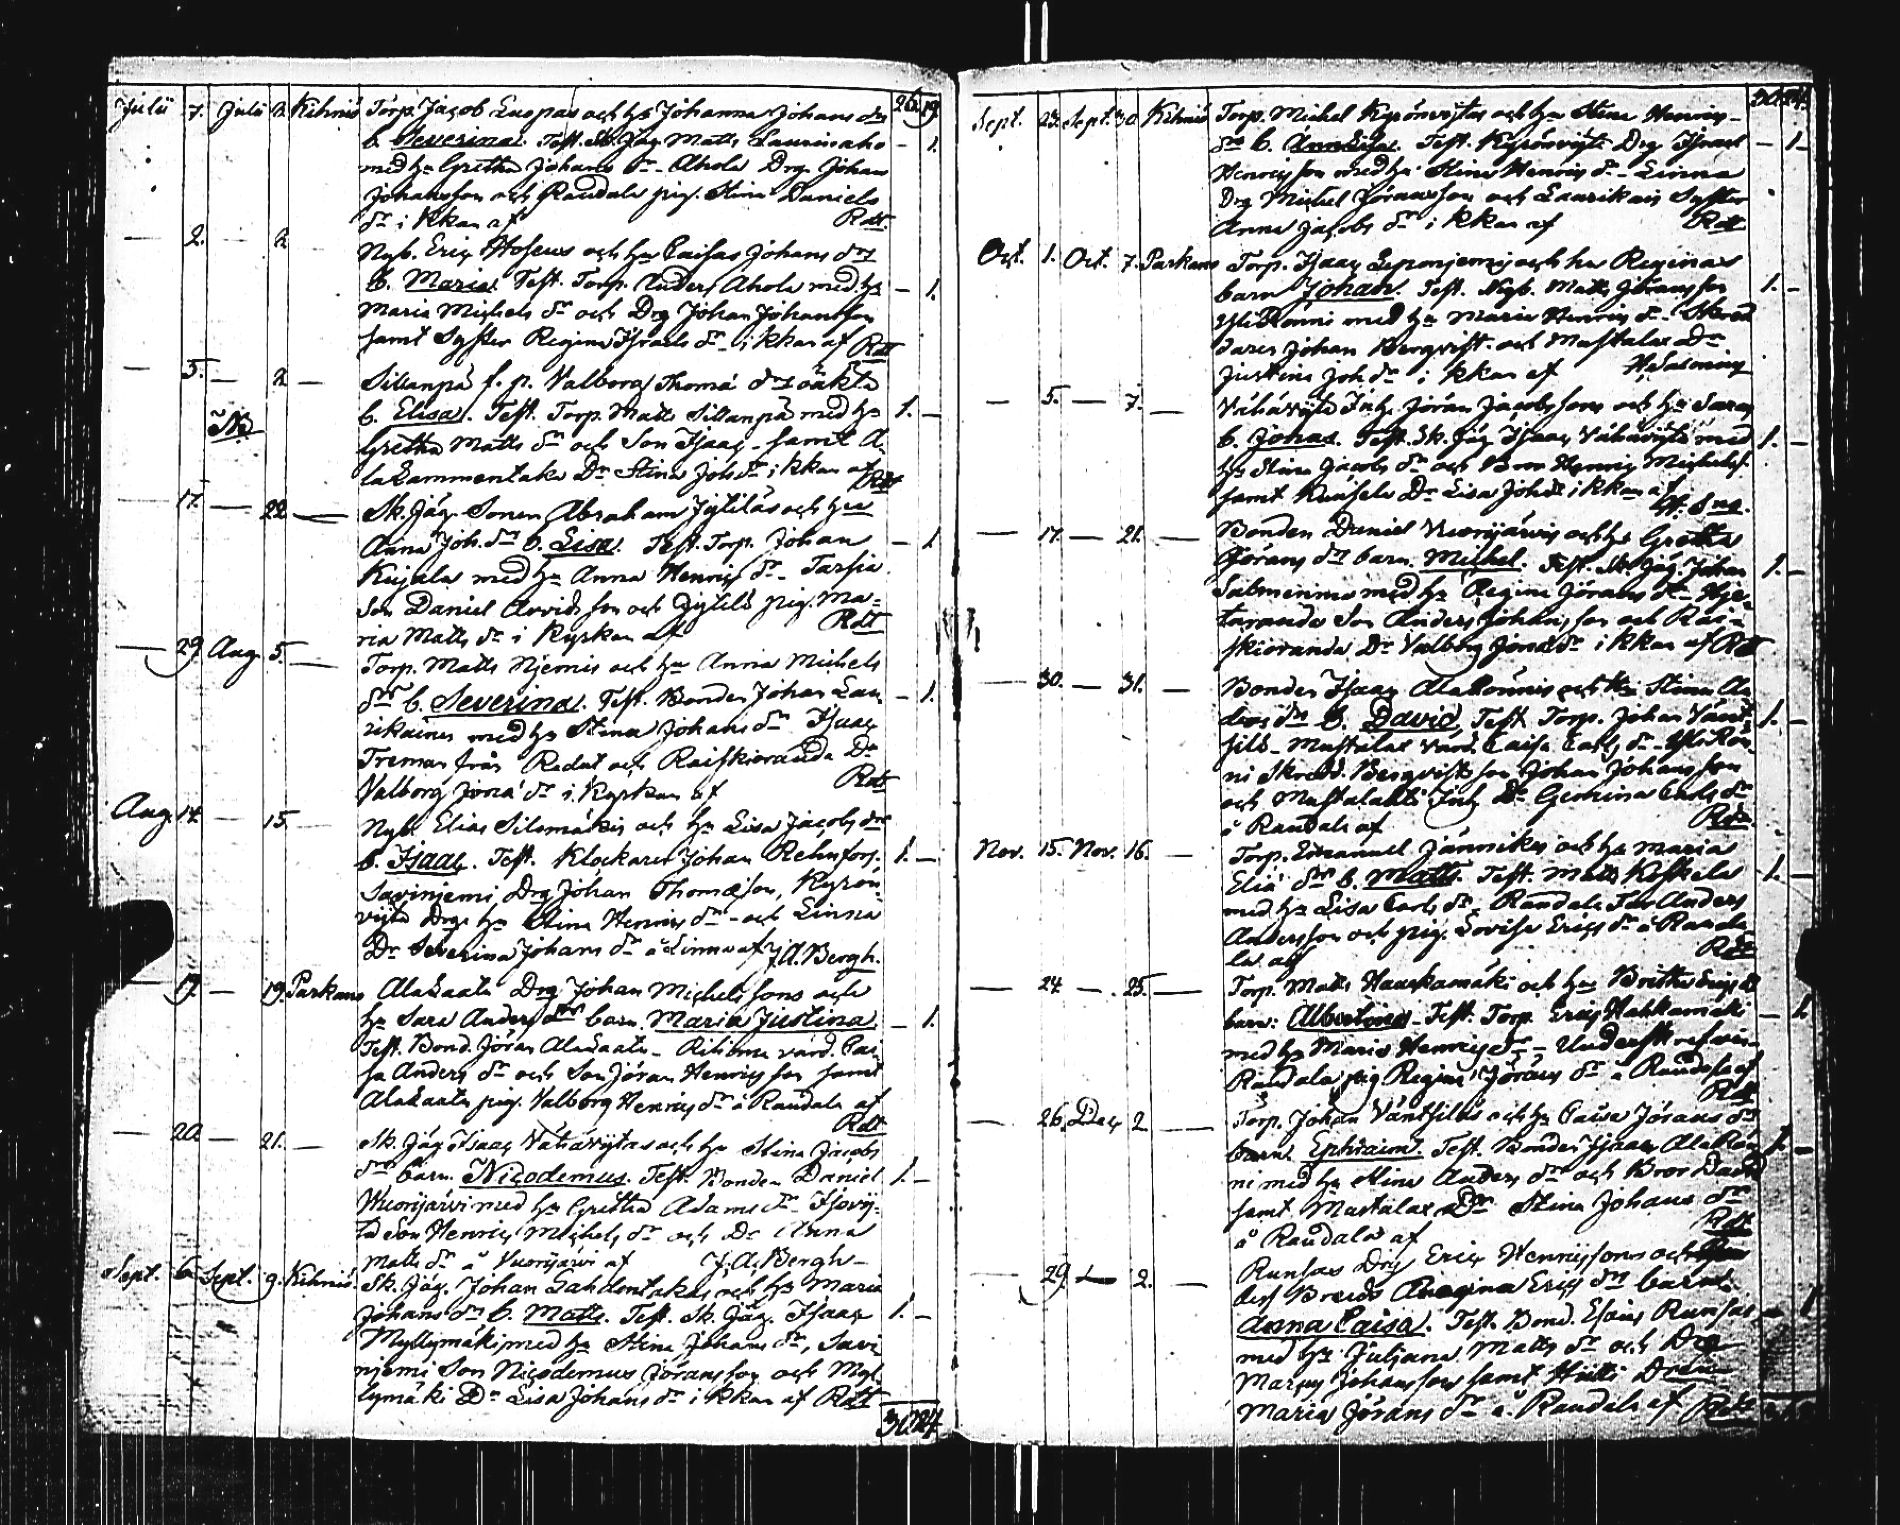 Julii 7. Julii 8. Kihniö Torp. Jacob Luopas och hs Johanna Johans dr 26 19
b. Severina. Test. Sk. Jäg. Matts Laurinaho – 1.
med hu Gretha Johans dr – Ahola Drg Johan
Johansson och Raudala pig. Stina Daniels
dr i kkan af Rdtt.
— 2. — 2 Nyb. Eric och hs Caisas Johans drs
b. Maria. Test. Torp. Anders Ahola med hu – 1.
Maria Michels dr och Drg Johan Johansson
samt Syster Regina Israels dr i kkan af Rdtt
— 5. — 2 — Sillanpä f. p. Valborg Thomæ drs oäkta
NB b. Elisa. Test. Torp. Matts Sillanpä med hu 1. –
Gretha Matts dr och Son Isaac – samt A-
lakammentaka Dr Stina Joh. dr i kkan af Rdtt
— 17. — 22 — Sk. Jäg. Sonen Abraham och hu
Anna Joh. dr b. Lisa. Test. Torp. Johan – 1.
Kujala med hu Anna Henrics dr – Tarsia
Son Daniel Arvidsson och pig. Ma-
ria Matts dr i Kyrkan af Rdtt
— 29. Aug. 5. — Torp. Matts Njemis och hu Anna Michels
dr b. Severina. Test. Bonden Johan Lau- – 1.
rikainen med hu Stina Johans dr Isaac
Treman från Redat och Raiskioranda Dr
Valborg Jonæ dr i Kyrkan af Rdtt
Aug 14 — 15. — Nyb. Elias Silomäkis och hu Lisa Jacobs dr
b. Isaac. Test. Klockaren Johan Rehnfors. 1. –
Savinjemi Drg Johan Thomæson, Kyrön-
vijta Drgs hu Stina Henrics dr – och Linna
Dr Severina Johans dr å Linna af J. A. Bergh.
— 17. — 19. Parkano Alakaata Drg Johan Michelssons och
hu Sara Anders drs barn Maria Justina – 1.
Test. Bond. Jöran Alakaata – värd. Cai-
sa Anders dr och Son Jöran Henricsson samt
Alakaata pig. Valborg Henrics dr å Raudala af
Rdtt
— 20. — 21. — Sk. Jäg Isaac Vähävijtas och hu Stina Jacobs
drs barn Nicodemus. Test. Bonden Daniel 1. –
Wuorijärvi med hu Gretha Adams dr – Isovij-
ta Son Henric Michels dr och Dr Anna
Matts dr å Vuorijärvi af J. A. Bergh –
Sept. 6 Sept. 9. Kihniö. Sk. Jäg. Johan Lahdentakas och hu Maria
Johans drs b. Matts. Test. Sk. Jäg. Isaac 1. –
Myllymäki med hu Stina Johans dr, Savi-
njemi Son Nicodemus Jöransson och Myl-
lymäki Dr Lisa Johans dr i kkan af Rdtt
30 24
Sept. 23. Sept. 30. Kihniö Torp. Michel Kyrönvijtas och hu Stina Henrics-
dr b. AnnaLisa. Test. Kyrönvijta Drg Israel – 1.
Henricsson med hu Stina Henrics dr – Linna
Drg Michel Jöransson och Laurikais Syster
Anna Jacobs dr i kkan af Rdtt
Oct. 1. Oct. 7. Parkano Torp. Isaac Leponjemis och hu Reginas
barn Johan. Test. Nyb. Matts Jöransson 1. –
YliRönni med hu Maria Henrics dr – Skred-
daren Johan Bergqvist och Mustalax Dr
Justina Joh. dr i kkan af H. Salming
— 5. — 7. — Vähävijta Inh. Jöran Jacobssons och hu Saras
b. Jonas. Test. Sk. Jäg Isaac Vähävijta med 1. –
hu Stina Jacobs dr och Bror Henric Michelss.
samt Kuusela Dr Lisa Joh. dr i kkan af
H. Sng.
— 17. — 21. — Bonden Daniel Vuorijärvis och hu Gretha
Jörans drs barn Michel. Test. Sk. Jäg. Johan 1. –
Salmenima med hu Regina Jörans dr –
taranda Son Anders Johansson och Rai-
skioranda Dr Valborg Jonæ dr i kkan af Rdtt
— 30. — 31. — Bonden Isaac AlaRönnis och hu Stina An-
ders drs b. David. Test. Torp. Johan Vänt- 1. –
silä – Mustalax värd. Caisa Carls dr – YliRön-
ni Skredd. Bergqvists son Johan Johansson
och Mustalahti Inh. Dr Gemina Carls dr
å Raudala af Rdtt
Nov. 15. Nov. 16. — Torp. Emanuel Jännikes och hu Maria
Eliæ drs b. Matts. Test. Matts Keskela 1. –
med hu Lisa Carls dr – Raudala Son Anders
Andersson och pig. Lovisa Erics dr å Rauda-
la af Rdtt
— 24 — 25. — Torp. Matts Haukamäki och hu Britha Erics dr
barn: Albertina – Test. Torp. Eric Hakkamäki – 1.
med hu Maria Henrics dr –
Raudala pig Regina Jörans dr å Raudala af
Rdtt
— 26. Dec. 2 — Torp. Johan Väntsiläs och hu Caisa Jörans dr
barn. Ephraim. Test. Bonden Isaac AlaRön- 1. –
ni med hu Stina Anders dr och Bror David
samt Mustalax Dr Stina Johans dr
å Raudala af Rdtt
— 29. — 2. — Runsas Drg Eric Henricssons och
dess Brud Regina Erics drs barn
Anna Caisa. Test. Bond. Esaias Runsas – 1
med hu Juliana Matts dr och Drg
Marcus Johansson samt Hütti
Maria Jörans dr å Raudala af Rdtt